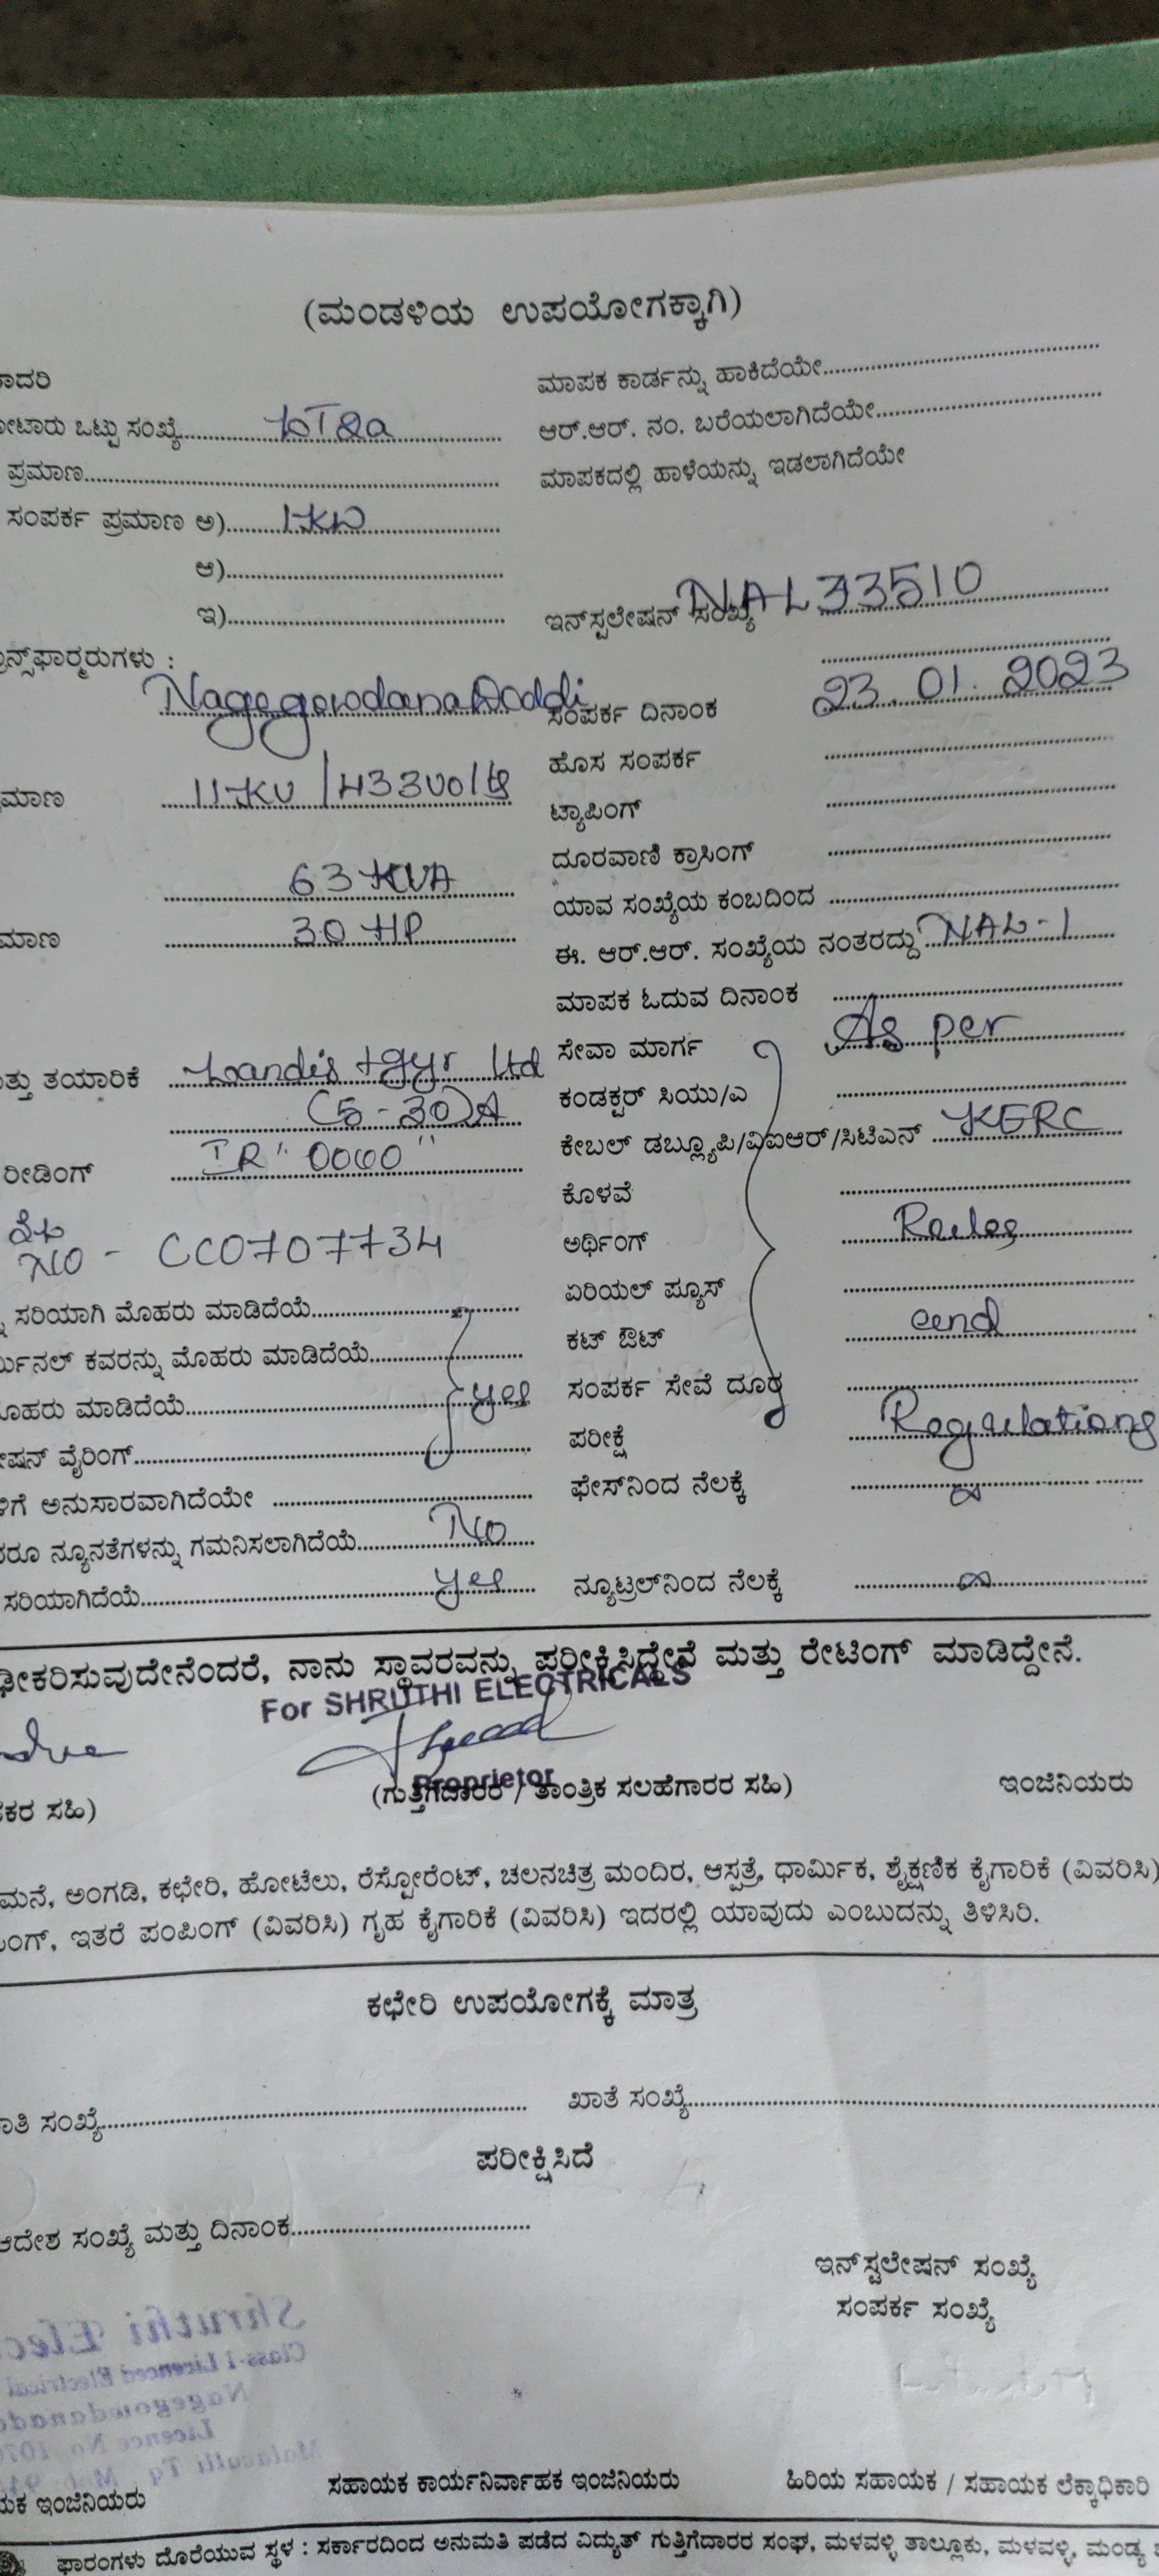 (ಮಂಡಳಿಯ ಉಪಯೋಗಕ್ಕಾಗಿ)
ಮಾಪಕ ಕಾರ್ಡನ್ನು ಹಾಕಿದೆಯೇ
ಒಟ್ಟು ಸಂಖ್ಯೆ
ಆರ್.ಆರ್. ನಂ. ಬರೆಯಲಾಗಿದೆಯೇ
ಪ್ರಮಾಣ
ಮಾಪಕದಲ್ಲಿ ಹಾಳೆಯನ್ನು ಇಡಲಾಗಿದೆಯೇ
ಸಂಪರ್ಕ ಪ್ರಮಾಣ ಅ) 1KW
ಆ)
ಇ)
ಇನ್‌ಸ್ಪಲೇಷನ್ ಸಂಖ್ಯೆ NAL33510
Nagegowdana Doddi
ಸಂಪರ್ಕ ದಿನಾಂಕ 23.01.2023
ಹೊಸ ಸಂಪರ್ಕ
11KV/433Volts
ಟ್ಯಾಪಿಂಗ್
ದೂರವಾಣಿ ಕ್ರಾಸಿಂಗ್
63 KVA
ಯಾವ ಸಂಖ್ಯೆಯ ಕಂಬದಿಂದ
30 HP
ಈ. ಆರ್.ಆರ್. ಸಂಖ್ಯೆಯ ನಂತರದ್ದು NAL-1
ಮಾಪಕ ಓದುವ ದಿನಾಂಕ
ತಯಾರಿಕೆ Landis + gyr Ltd
ಸೇವಾ ಮಾರ್ಗ As per
(5-30)A
ಕಂಡಕ್ಟರ್ ಸಿಯು/ಎ
ರೀಡಿಂಗ್ IR "0000"
ಕೇಬಲ್ ಡಬ್ಲ್ಯೂಪಿ/ವಿಐಆರ್/ಸಿಟಿಎನ್ KERC
ಕೊಳವೆ
NO - CC0707734
ಅರ್ಥಿಂಗ್ Rules
ಏರಿಯಲ್ ಪ್ಯೂಸ್
ಸರಿಯಾಗಿ ಮೊಹರು ಮಾಡಿದೆಯೆ
ಕಟ್ ಔಟ್ and
ಕವರನ್ನು ಮೊಹರು ಮಾಡಿದೆಯೆ
ಸಂಪರ್ಕ ಸೇವೆ ದೂರ
ಮಾಡಿದೆಯೆ yes
ಪರೀಕ್ಷೆ Regulations
ವೈರಿಂಗ್
ಫೇಸ್‌ನಿಂದ ನೆಲಕ್ಕೆ ∞
ಅನುಸಾರವಾಗಿದೆಯೇ
ನ್ಯೂನತೆಗಳನ್ನು ಗಮನಿಸಲಾಗಿದೆಯೆ No
ಸರಿಯಾಗಿದೆಯೆ yes
ನ್ಯೂಟ್ರಲ್‌ನಿಂದ ನೆಲಕ್ಕೆ ∞
ನಾನು ಸ್ಥಾವರವನ್ನು ಪರೀಕ್ಷಿಸಿದ್ದೇನೆ ಮತ್ತು ರೇಟಿಂಗ್ ಮಾಡಿದ್ದೇನೆ.
For SHRUTHI ELECTRICALS
Proprietor
ಸಹಿ)
(ಗುತ್ತಿಗೆದಾರರ / ತಾಂತ್ರಿಕ ಸಲಹೆಗಾರರ ಸಹಿ)
ಇಂಜಿನಿಯರು
ಮನೆ, ಅಂಗಡಿ, ಕಛೇರಿ, ಹೋಟೆಲು, ರೆಸ್ಟೋರೆಂಟ್, ಚಲನಚಿತ್ರ ಮಂದಿರ, ಆಸ್ಪತ್ರೆ, ಧಾರ್ಮಿಕ, ಶೈಕ್ಷಣಿಕ ಕೈಗಾರಿಕೆ (ವಿವರಿಸಿ)
ಇತರೆ ಪಂಪಿಂಗ್ (ವಿವರಿಸಿ) ಗೃಹ ಕೈಗಾರಿಕೆ (ವಿವರಿಸಿ) ಇದರಲ್ಲಿ ಯಾವುದು ಎಂಬುದನ್ನು ತಿಳಿಸಿರಿ.
ಕಛೇರಿ ಉಪಯೋಗಕ್ಕೆ ಮಾತ್ರ
ಸಂಖ್ಯೆ
ಖಾತೆ ಸಂಖ್ಯೆ
ಪರೀಕ್ಷಿಸಿದೆ
ಆದೇಶ ಸಂಖ್ಯೆ ಮತ್ತು ದಿನಾಂಕ
ಇನ್‌ಸ್ಟಲೇಷನ್ ಸಂಖ್ಯೆ
ಸಂಪರ್ಕ ಸಂಖ್ಯೆ
ಇಂಜಿನಿಯರು
ಸಹಾಯಕ ಕಾರ್ಯನಿರ್ವಾಹಕ ಇಂಜಿನಿಯರು
ಹಿರಿಯ ಸಹಾಯಕ / ಸಹಾಯಕ ಲೆಕ್ಕಾಧಿಕಾರಿ
ಫಾರಂಗಳು ದೊರೆಯುವ ಸ್ಥಳ : ಸರ್ಕಾರದಿಂದ ಅನುಮತಿ ಪಡೆದ ವಿದ್ಯುತ್ ಗುತ್ತಿಗೆದಾರರ ಸಂಘ, ಮಳವಳ್ಳಿ ತಾಲ್ಲೂಕು, ಮಳವಳ್ಳಿ, ಮಂಡ್ಯ